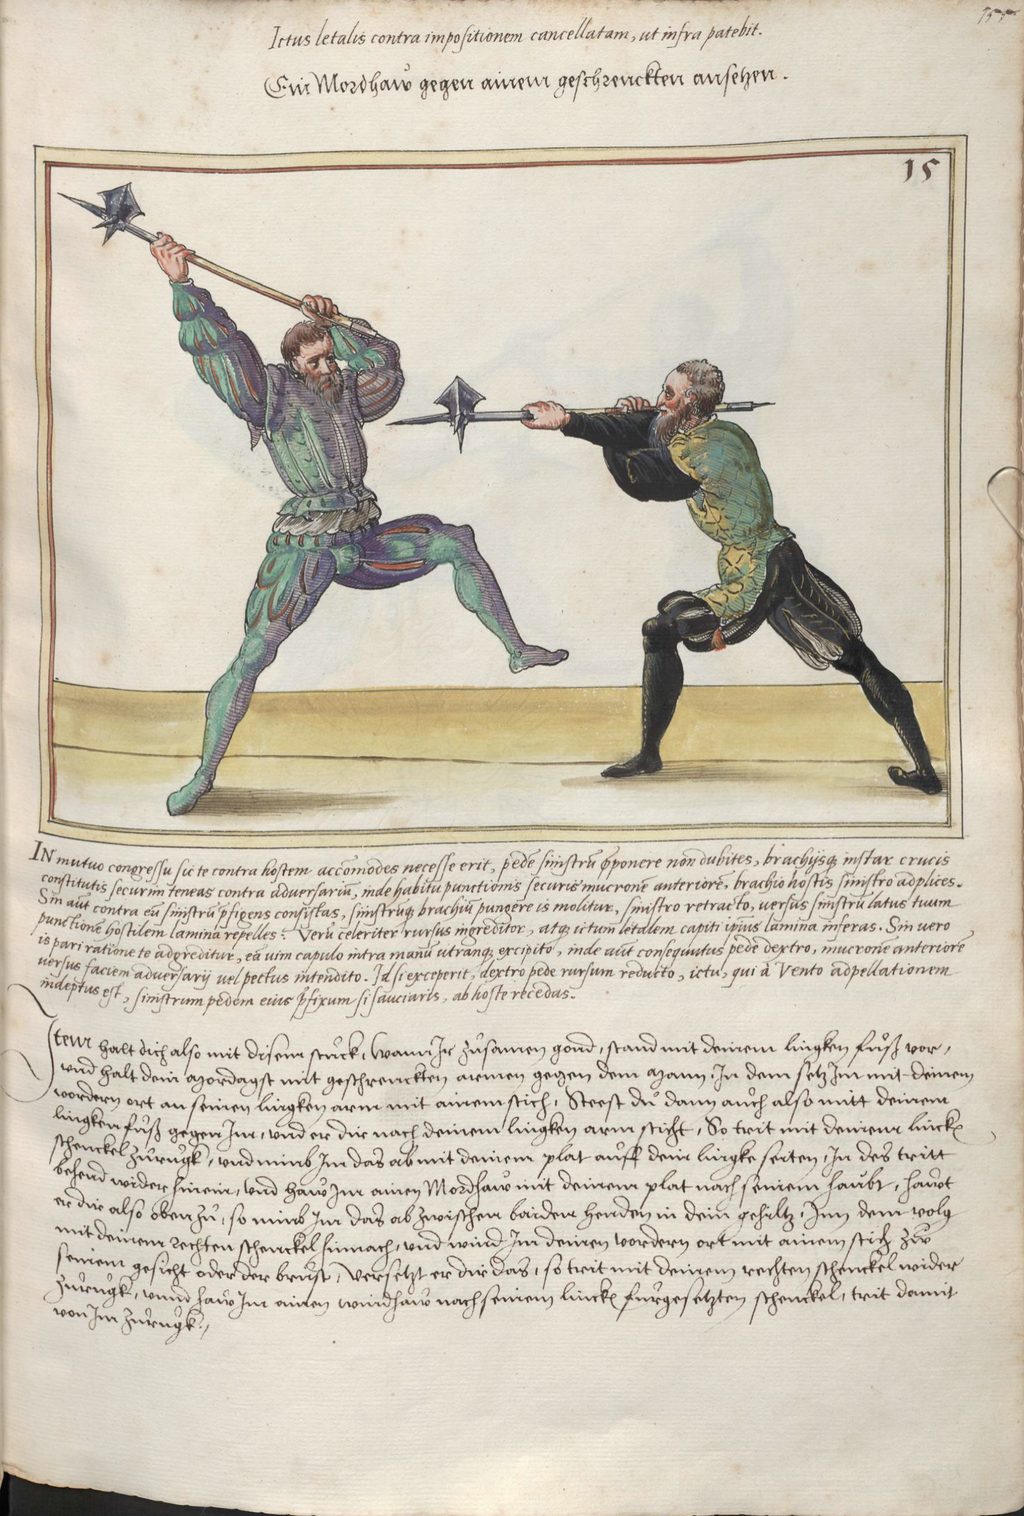 Ictus letalis contra impositionem cancellatam, ut infra patebit.
Ein Mordhaw gegen ainem geschrenckten ansetzen.
15
IN mutuo congressu sic te contra hostem accomodes necesse erit, pede sinistrũ ꝓponere non dubites, brachijsq; instar crucis
constitutis securim teneas contra adversariũ, inde habitu punctionis securis mucronẽ anteriorẽ, brachio hostis sinistro adplices.
Sin aũt contra eũ sinistrũ p̱figens consistas, sinistrũq; brachiũ pungere is molitur, sinistro retracto, versus sinistrũ latus tuum
punctionẽ hostilem lamina repelles: Verũ celeriter rursus ingreditor, atq; ictum letalem capiti ipsius lamina inferas. Sin vero
is pari ratione te adgreditur, eã vim capulo intra manũ utranq; excipito, inde aũt consequutus pede dextro, mucronẽ anteriorẽ
versus faciem adversarij vel pectus intendito. Id si exceperit, dextro pede rursum reducto, ictu, qui à Vento adpellationem
indeptus est, sinistrum pedem eius p̱fixum si sauciaris, ab hoste recedas.
Item halt dich also mit disem stuck, wann Ir zůsamen gond, stand mit deinem lingken fůß vor,
vnd halt dein mordagst mit geschrenckten armen gegen dem Mann. In dem setz Im mit deinem
vordern ort an seinen lingken arm mit ainem stich, Steest dů dann aůch also mitt deinem
lingken fůß gegen Im, vnd er dir nach deinem lingken arm sticht, So trit mit deinem linckẽ
schenckel zůrugk, vnd nimb Im das ab mit deinem plat aůff dein lingke seiten, In des tritt
behend wider hinein, vnd haw Im ainen Mordhaw mit deinem plat nach seinem haůbt, hawt
er dir also oben zů, so nimb Im das ab zwischen baiden henden in dein gehiltz, Inn dem volg
mit deinem rechten schenckel hinnach, vnd wind Im deinen vordern ort mit ainem stich zů
seinem gesicht oder der brůst, versetzt er dir das, so trit mit deinem rechten schenckel wider
zůrůgk, vnnd haw Im ainen windhaw nach seinem linckẽ fürgesetzten schenckel, trit damit
von Im zůrůgk.